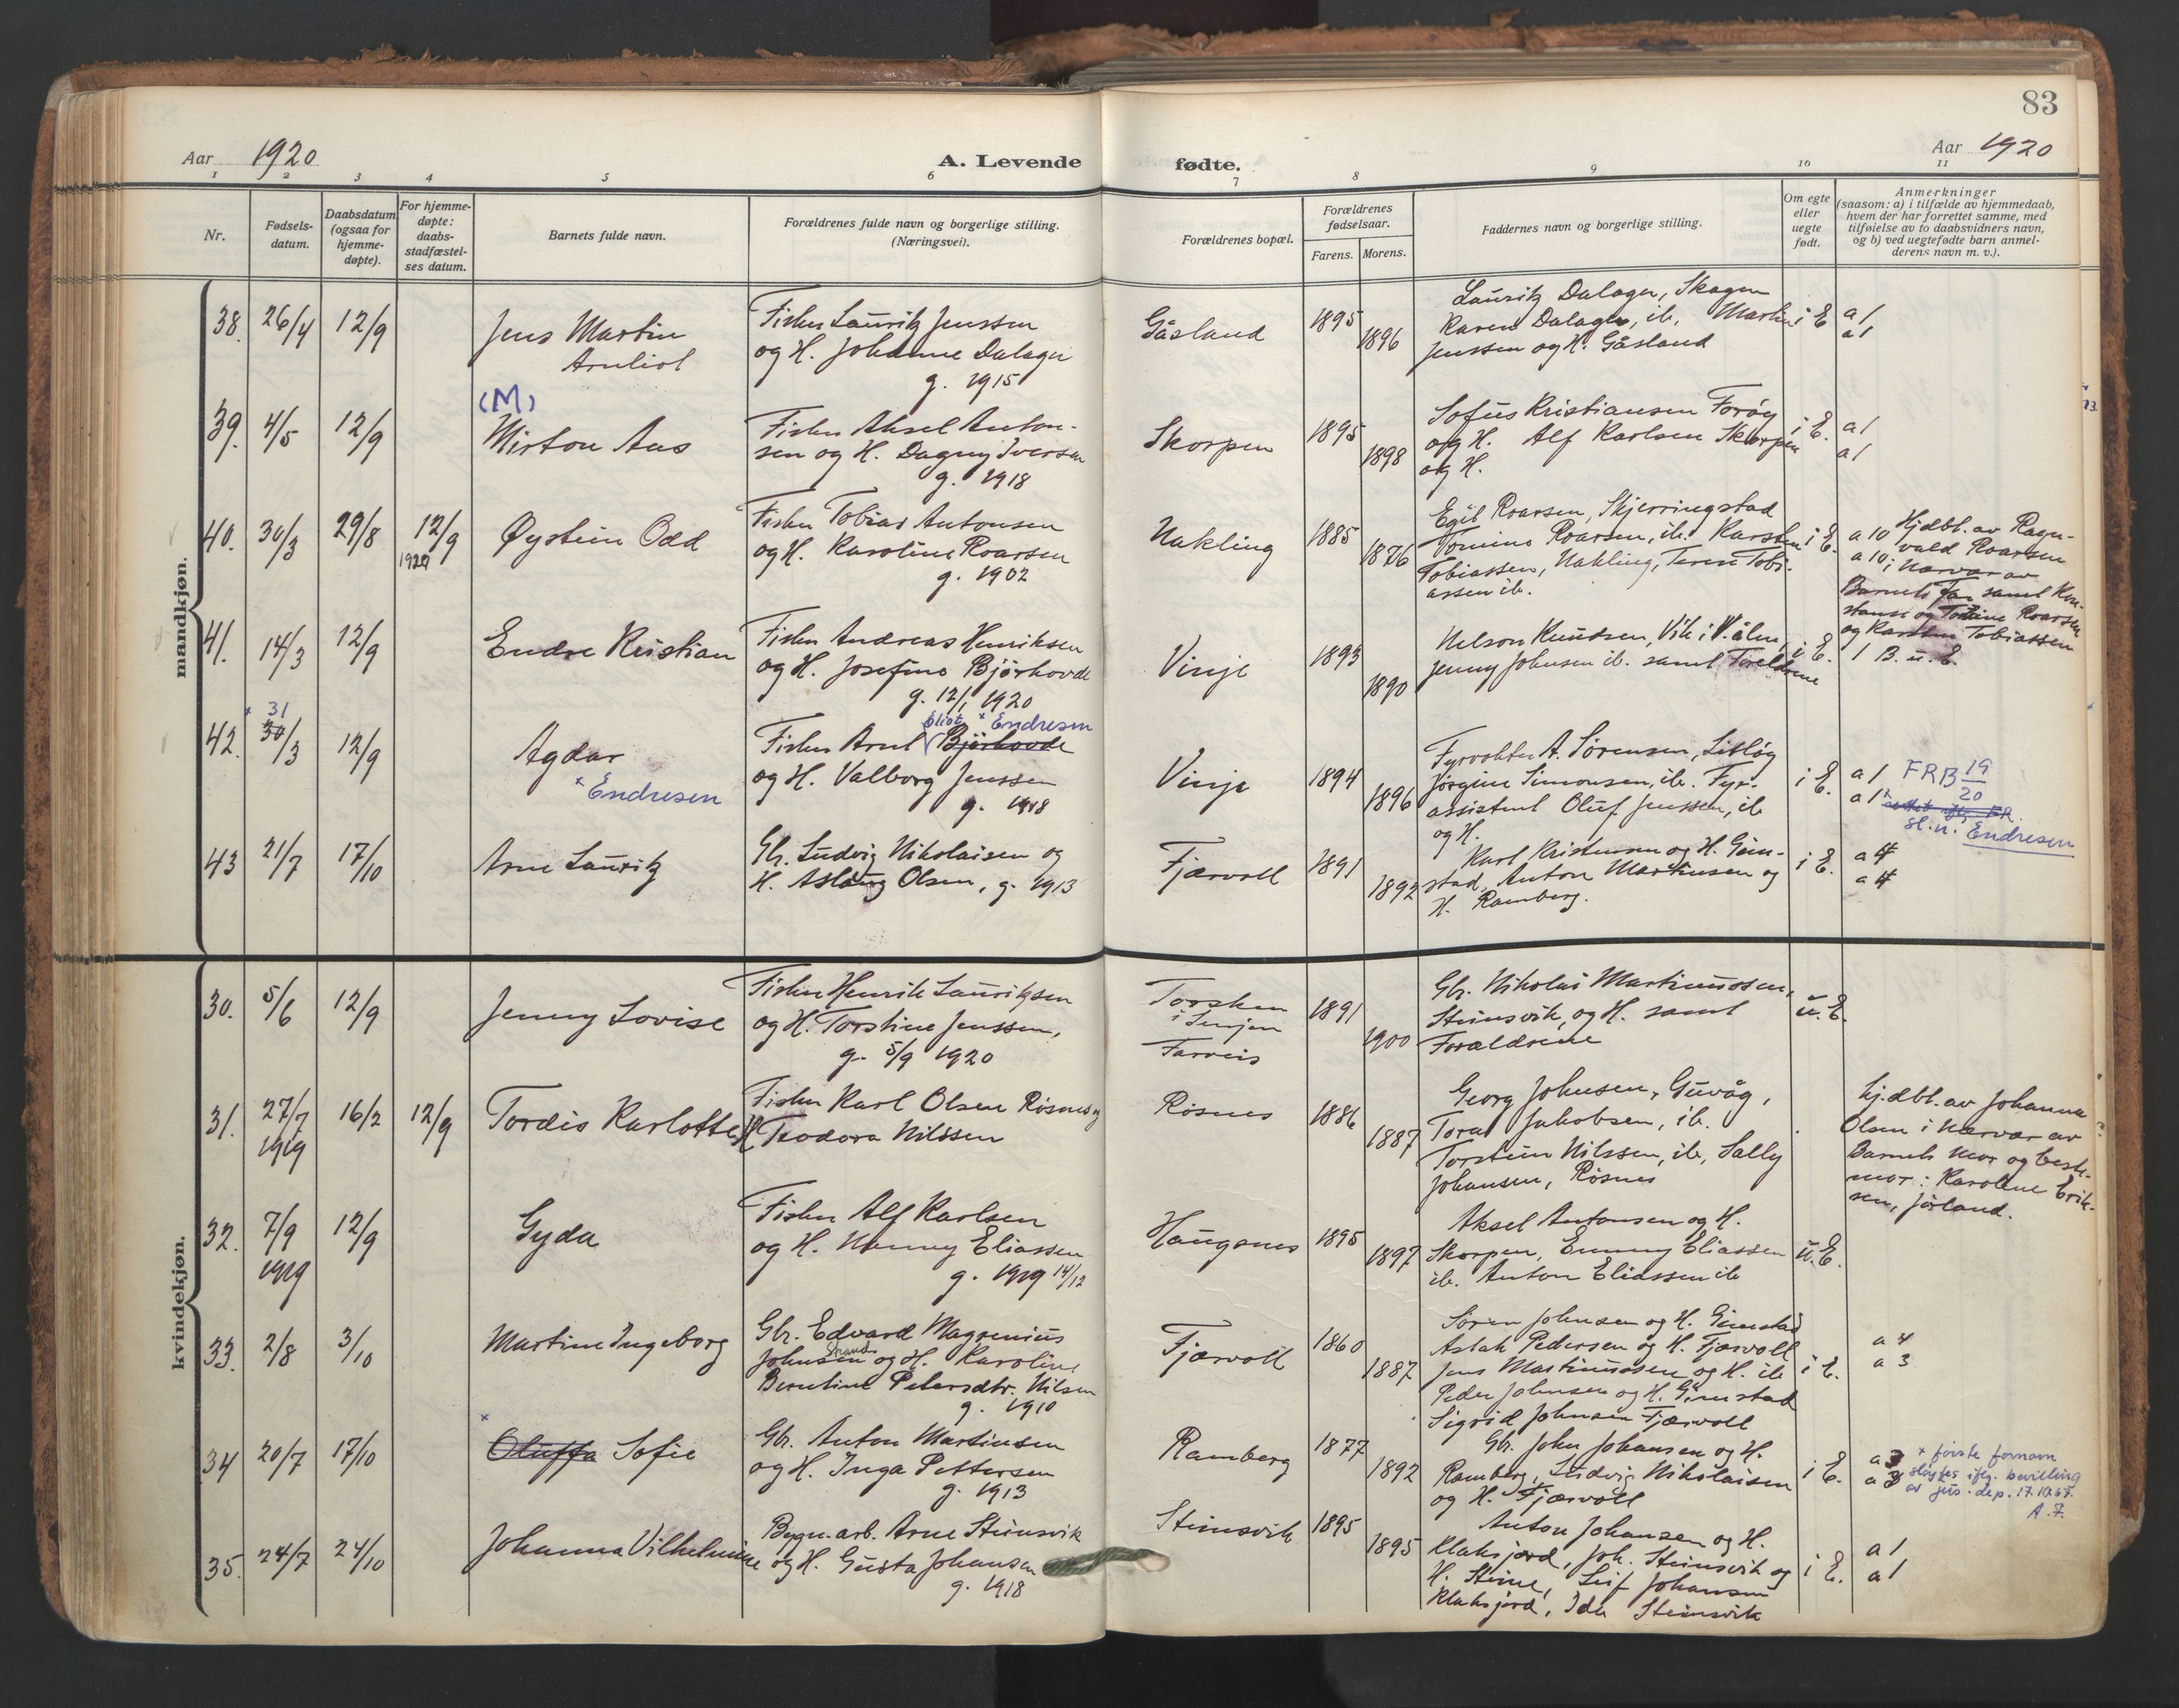 83
Aar 1920
A. Levende fødte.
Aar 1920
1 2 3 4 5 6 7 8 9 10 11
Nr.
Fødsels-
datum.
Daabsdatum
(ogsaa for
hjemme-
døpte).
For hjemme-
døpte:
daabs-
stadfæstel-
ses datum.
Barnets fulde navn.
Forældrenes fulde navn og borgerlige stilling.
(Næringsvei).
Forældrenes bopæl.
Forældrenes
fødselsaar.
Farens. Morens.
Faddernes navn og borgerlige stilling.
Om egte
eller
uegte
født.
Anmerkninger
(saasom: a) i tilfælde av hjemmedaab,
hvem der har forrettet samme, med
tilføielse av to daabsvidners navn,
og b) ved uegtefødte barn anmel-
derens navn m. v.).
mandkjøn.
38. 26/4 12/9
Jens Martin
Arnliot
Fisker Lauritz Jenssen
og H. Johanne Dalager
g. 1915
Gåsland
1895
1896
Lauritz Dalager, Skagen
Karen Dalager, ib. Martin
Jenssen og H. Gåsland
i E.
a 1
a 1
39. 4/5 12/9
(M)
Mirton Aas
Fisker Aksel Anton-
sen og H. Dagny Iversen
g. 1918
Skorpen
1895
1898
Sofus Kristiansen Forøy
og H. Alf Karlsen Skorpen
og H.
i E.
a 1
a 1
40. 30/3 29/8 12/9
1920
Øystein Odd
Fisker Tobias Antonsen
og H. Karoline Roarsen
g. 1902
Nakling
1885
1876
Egil Roarsen, Skjerringstad
Tomine Roarsen, ib. Karsten
Tobiassen, Nakling, Teren Tobi-
assen ib.
i E.
a 10
a 10
Hjdbt. av Ragn-
vald Roarsen
i Nærvær av
Barnets Far samt Kon-
stanse og Tomine Roarsen
og Karsten Tobiassen
41. 14/3 12/9
Endre Kristian
Fisker Andreas Henriksen
og H. Josefine Bjørhovde
g. 12/1 1920
Vinje
1893
1890
Nelson Knudsen, Vik i V.ålen,
Jenny Johnsen ib. samt Foreldrene
i E.
1 B. u. E.
42. x 31
30/3 12/9
Agdar
x Endresen
Eliot x Endresen
Fisker Arnt Bjørhovde
og H. Valborg Jenssen
g. 1918
Vinje
1894
1896
Fyrvokter A. Sørensen, Litløy
Jørgine Simonsen, ib. Fyr-
assistent Oluf Jenssen, ib
og H.
i E.
a 1
a 1
FRB 19/20
sl.n. Endresen
43 21/7 17/10
Arne Lauritz
Gbr. Ludvig Nikolaisen og
H. Aslaug Olsen, g. 1913
Fjærvoll
1891
1892
Karl Kristensen og H. Gim-
stad, Anton Martinsen og
H. Ramberg.
i E.
a 4
a 4
kvindekjøn.
30. 5/6 12/9
Jenny Lovise
Fisker Henrik Lauritzsen
og H. Torstine Jenssen,
g. 5/9 1920
Torsken
i Senjen
Farveis
1891
1900
Gbr. Nikolai Martinussen,
Steinsvik, og H. samt
Forældrene
u. E.
31. 27/7 16/2 12/9
1919
Tordis Karlotte
Fisker Karl Olsen Røsnes og
H. Teodora Nilssen
Røsnes
1886
1887
Georg Johnsen, Guvåg,
Tora Jakobsen, ib.
Torstein Nilssen, ib, Sally
Johansen, Røsnes
hj.dbt. av Johanna
Olsen i Nærvær av
Barnets Mor og beste-
mor: Karoline Erik-
sen, Jørland.
32. 7/9 12/9
1919
Gyda
Fisker Alf Karlsen
og H. Nanny Eliassen
g. 1919 14/12
Haugsnes
1895
1897
Aksel Antonsen og H.
Skorpen, Emmy Eliassen
ib. Anton Eliassen ib
u. E.
33. 2/8 3/10
Martine Ingeborg
Gbr. Edvard Magrenius
Johnsen Strand og H. Karoline
Berntine Petersdtr. Nilsen
g. 1910
Fjærvoll
1860
1887
Søren Johnsen og H. Gimstad
Astak Pedersen og H. Fjærvoll
Jens Martinussen og H. ib
Peder Johnsen og H. Gimstad
Sigrid Johnsen Fjærvoll
i E.
a 4
a 3
34 20/7 17/10
x
Oluffa Sofie
Gbr. Anton Martinsen
og H. Inga Pettersen
g. 1913
Ramberg
1877
1892
Gbr. John Johansen og H.
Ramberg, Ludvig Nikolaisen
og H. Fjærvoll
i E.
a 3
a 3
x første fornavn
sløyfes iflg. bevilling
av jus. dep. 17.10.67.
A.F.
35. 24/7 24/10
Johanna Vilhelmine
Bygn. arb. Arne Steinsvik
og H. Gusta Johansen
g. 1918
Steinsvik
1895
1895
Anton Johansen og H.
Klaksjord, Joh. Steinsvik og
H. Steine, Leif Johansen
Klaksjord, Ida Steinsvik
i E.
a 1
a 1